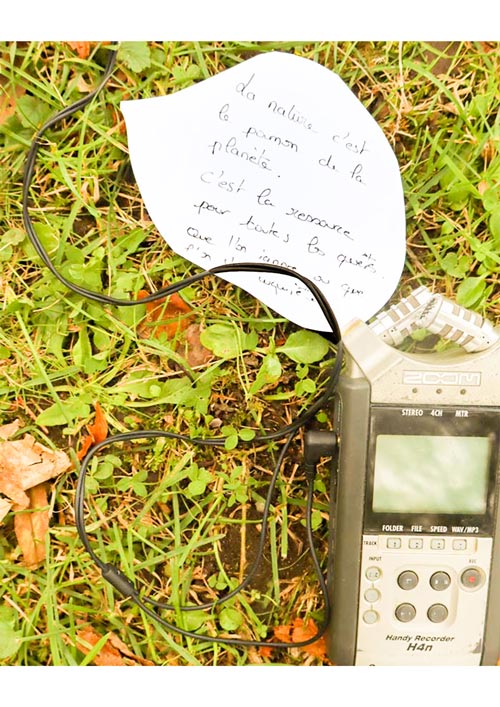 La nature c'est
le poumon de la
planète.
c'est la ressource
pour toutes les
Que l'on ou que
ZOOM
STEREO 4CH MTR
FOLDER FILE SPEED WAV/MP3
TRACK 1 2 3 4
INPUT
REC
Handy Recorder
H4n